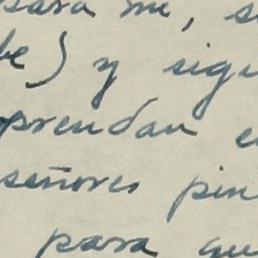 para mi, s
be) y sigu
prendan e
señores pin
para qu